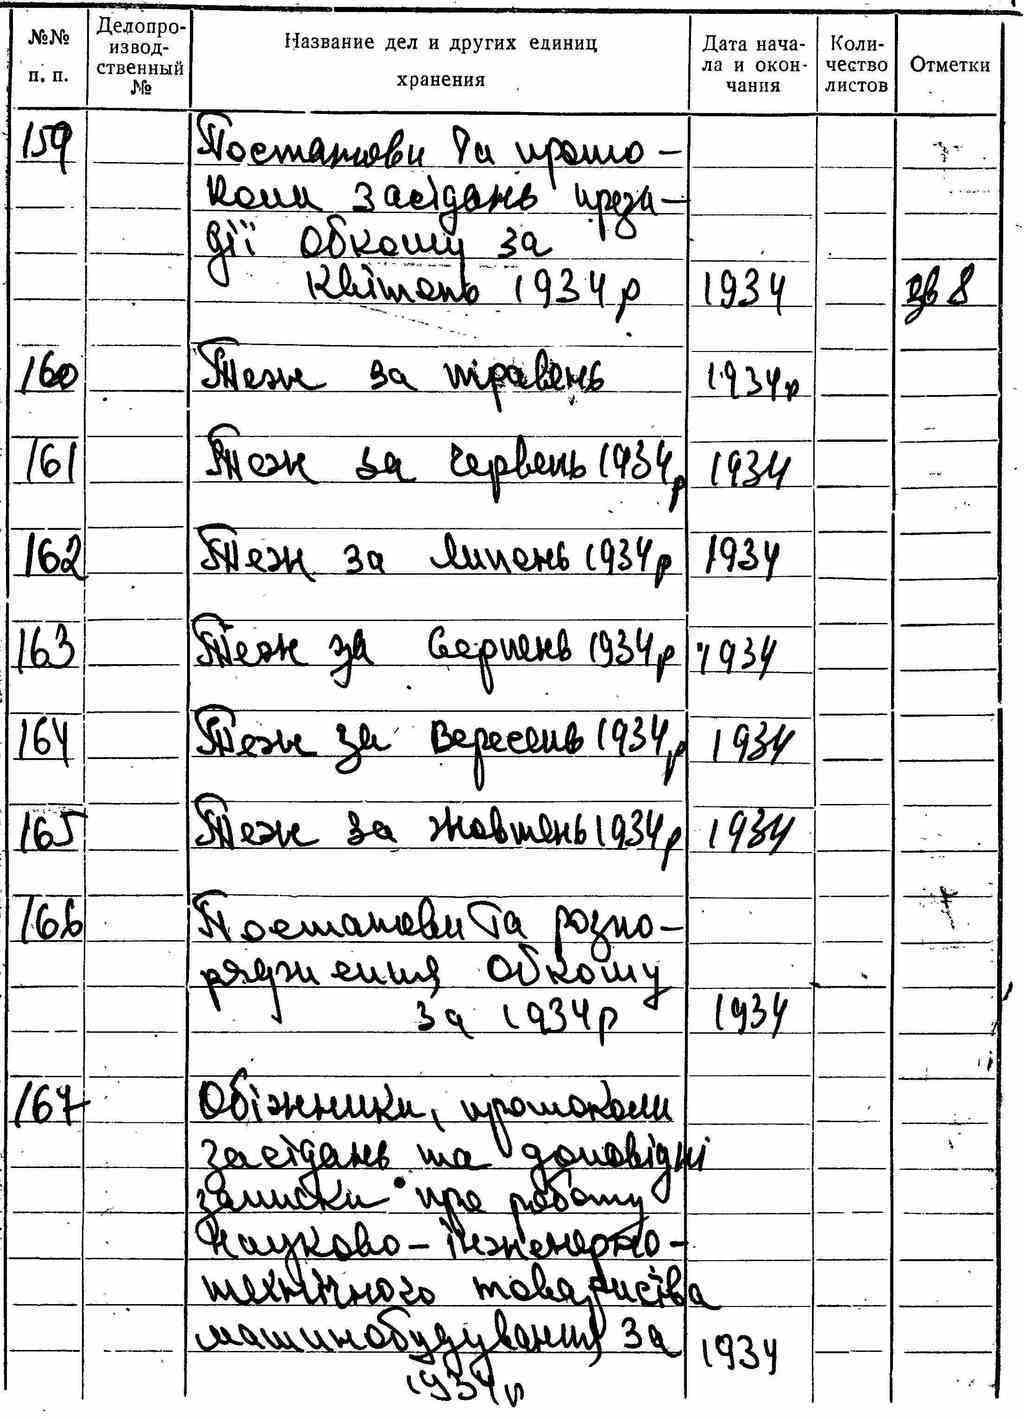 №№ п. п.
Делопроизвод- ственный №
Название дел и других единиц
хранения
Дата нача-
ла и окон-
чания
Коли-
чество
листов
Отметки
159 Постанови та прото-
коли засідань прези-
дії Обкому за
Квітень 1934 р 1934
160 Теж за травень 1934 р
161 Теж за Червень 1934 р 1934
162 Теж за Липень 1934 р 1934
163 Теж за Серпень 1934 р 1934
164 Теж за Вересень 1934 р 1934
165 Теж за жовтень 1934 р 1934
166 Постанови та розпо-
рядження Обкому
за 1934 р 1934
167 Обіжники, протоколи
засідань та доповідні
записки про роботу
Науково-інженерно-
технічного товариства
машинобудування за 1934
1934 р